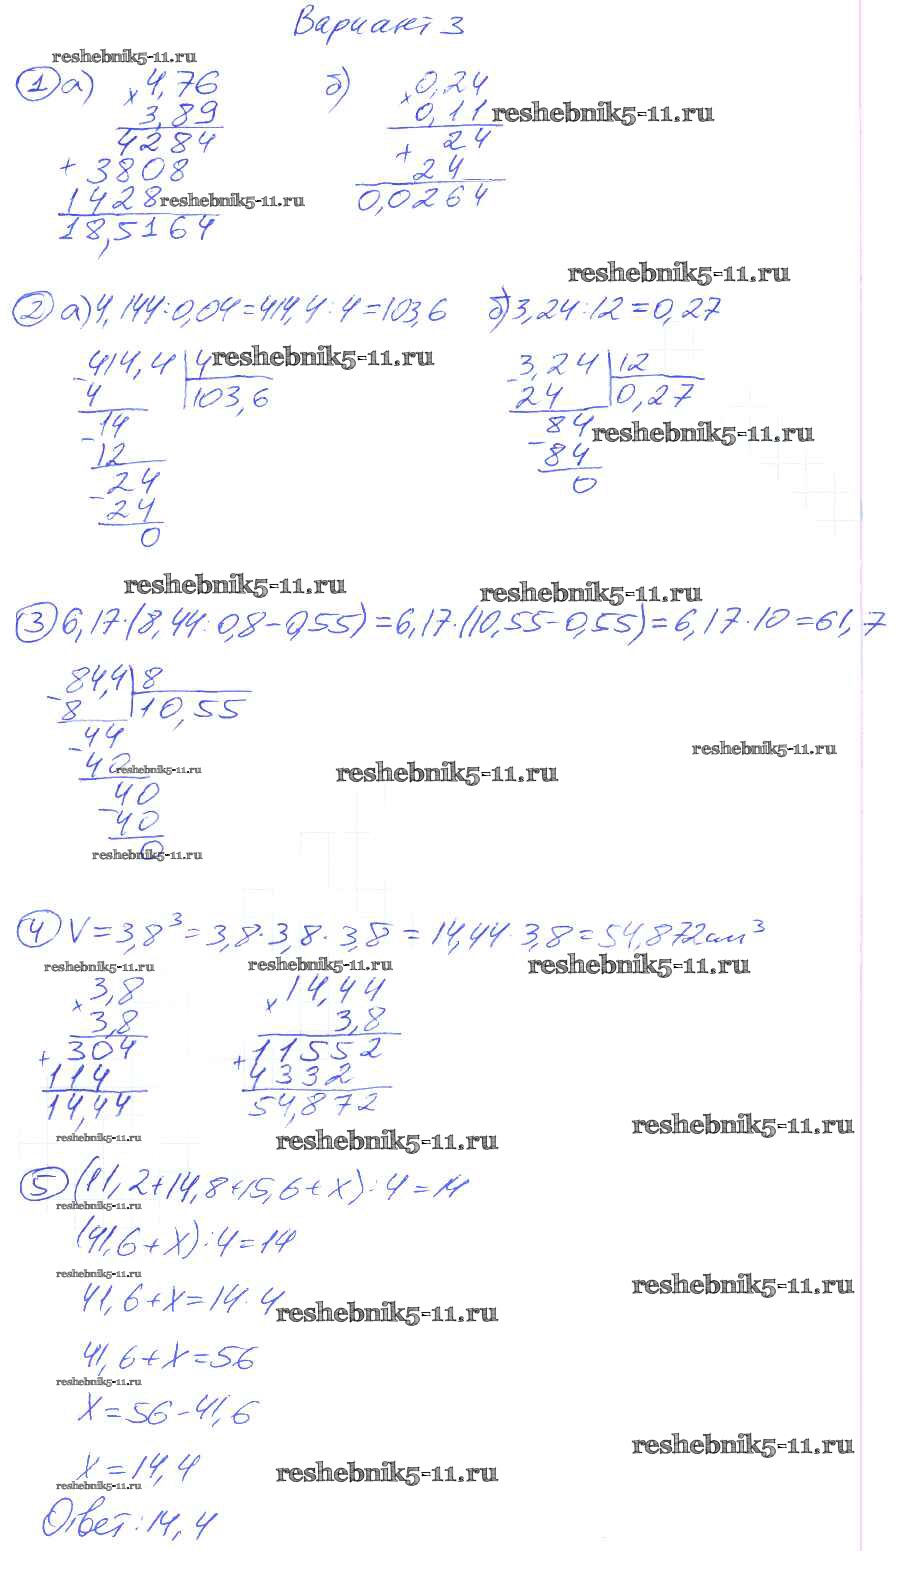 Вариант 3
reshebnik5-11.ru
1 а) 4,76 б) 0,24
× 3,89 × 0,11 reshebnik5-11.ru
4284 24
+ 3808 + 24
1428 reshebnik5-11.ru 0,0264
18,5164
reshebnik5-11.ru
2 а) 4,144:0,04=414,4:4=103,6 б) 3,24:12=0,27
-414,4 4 reshebnik5-11.ru -3,24 12
4 103,6 24 0,27
-14 -84 reshebnik5-11.ru
12 84
-24 0
24
0
reshebnik5-11.ru reshebnik5-11.ru
3 6,17·(8,44:0,8-0,55)=6,17·(10,55-0,55)=6,17·10=61,7
-84,4 8
8 10,55
-44 reshebnik5-11.ru
40 reshebnik5-11.ru reshebnik5-11.ru
-40
40
0
reshebnik5-11.ru
4 V=3,8³=3,8·3,8·3,8=14,44·3,8=54,872см³
reshebnik5-11.ru reshebnik5-11.ru reshebnik5-11.ru
×3,8 ×14,44
3,8 3,8
+304 +11552
114 4332
14,44 54,872
reshebnik5-11.ru reshebnik5-11.ru reshebnik5-11.ru
5 (11,2+14,8+15,6+x):4=14
reshebnik5-11.ru
(41,6+x):4=14
reshebnik5-11.ru reshebnik5-11.ru
41,6+x=14·4 reshebnik5-11.ru
41,6+x=56
reshebnik5-11.ru
x=56-41,6
reshebnik5-11.ru
x=14,4 reshebnik5-11.ru
reshebnik5-11.ru
Ответ:14,4